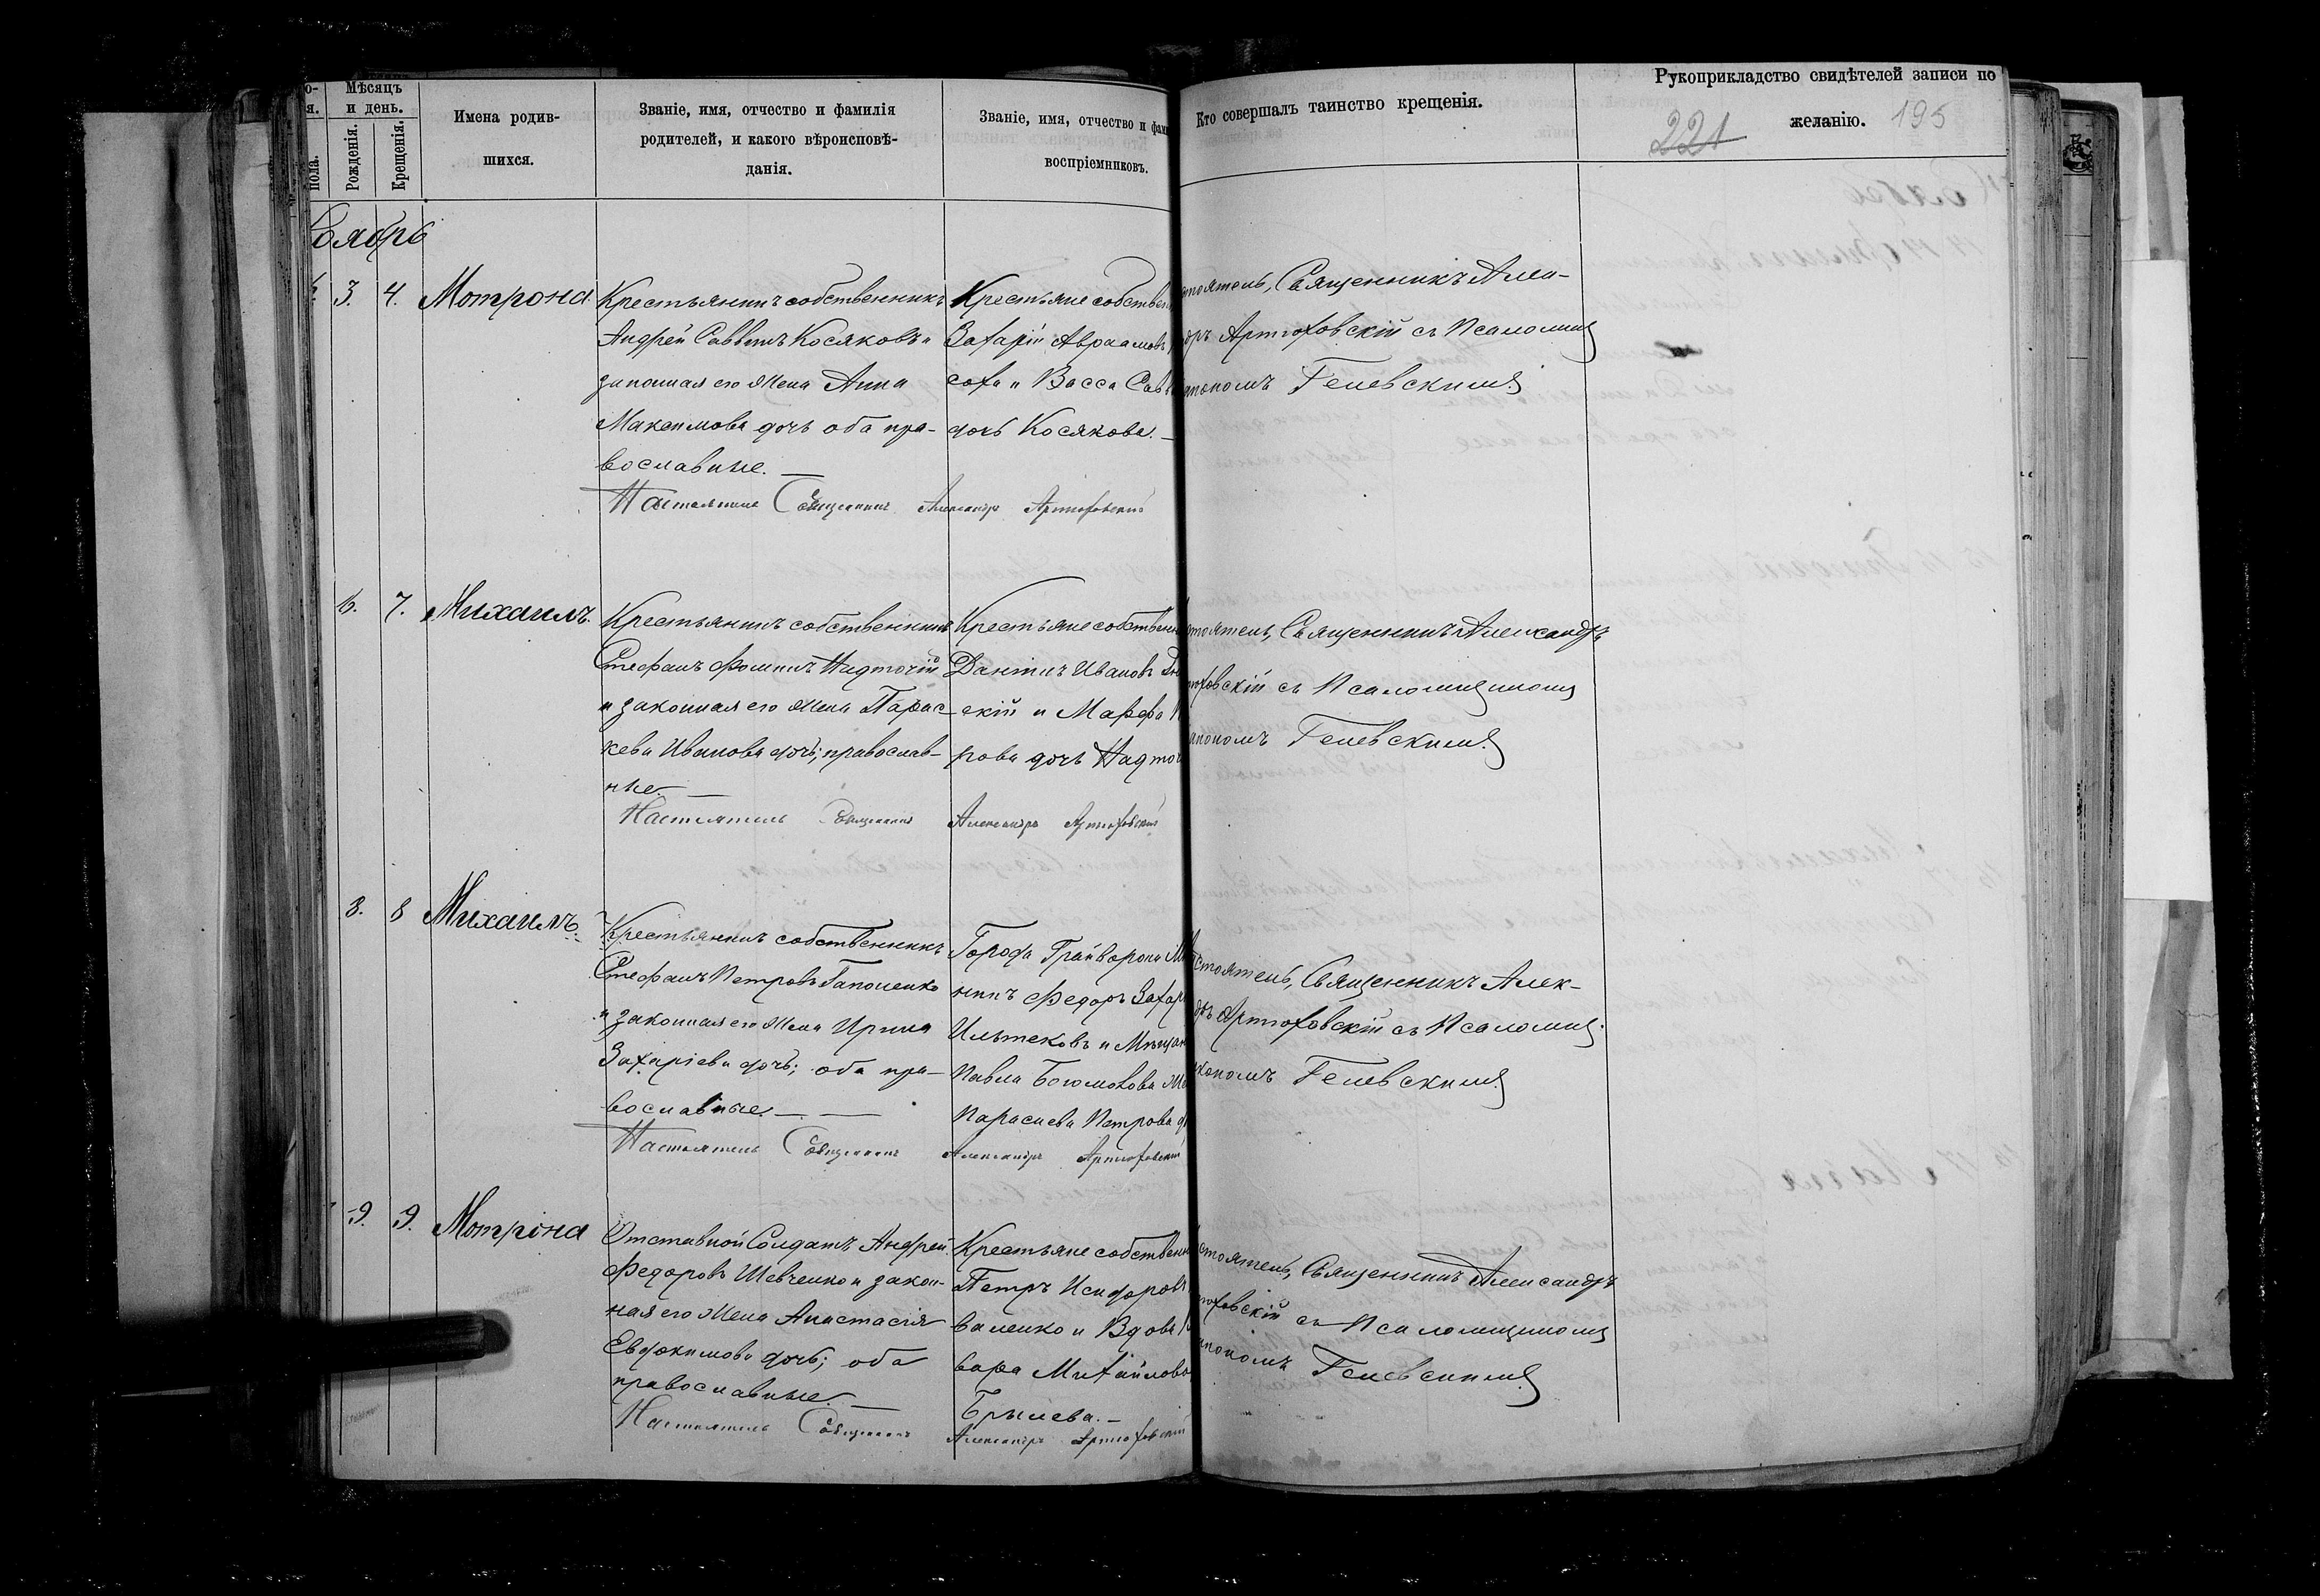 Мѣсяцъ
и день.
Рожденія.
Крещенія.
пола.
Имена родив-
шихся.
Званіе, имя, отчество и фамилія
родителей, и какого вѣроисповѣ-
данія.
Званіе, имя, отчество и фам
воспріемниковъ.
Кто совершалъ таинство крещенія.
Рукоприкладство свидѣтелей записи по
желанію.
221
195
оябрь
3. 4. Мотрона
Крестьянинъ собственникъ
Андрей Саввинъ Косяковъ и
законная его жена Анна
Максимова дочь оба пра-
вославные.
Крестьяне собствен
Захарій Авраамовъ
соха и Васса Савв
дочь Косякова.
стоятель, Священникъ Алек-
дръ Артюховскій съ Псаломщ
Гелевскимъ
Настоятель Священникъ Александръ Артюховскій
6. 7. Михаилъ.
Крестьянинъ собственникъ
Стефанъ Фоминъ Надточій
и законная его жена Парас-
кева Иванова дочь; православ-
ные.
Крестьяне собственн
Ивановъ
скій и Марфа
рова дочь Надточ
стоятель, Священникъ Александръ
тюховскій съ Псаломщикомъ
Гелевскимъ
Настоятель Священникъ Александръ Артюховскій
8. 8 Михаилъ.
Крестьянинъ собственникъ
Стефанъ Петровъ Гапоненко
и законная его жена Ирина
Захаріева дочь; оба пра-
вославные.
Города Грайворона М
нинъ Федоръ Захар
и Мѣщан
Павла Богомолова же
Параскева Петрова д
стоятель, Священникъ Алек-
дръ Артюховскій съ Псаломщ.
Гелевскимъ
Настоятель Священникъ Александръ Артюховскій
9. 9. Мотрона
Отставной Солдатъ Андрей
Федоровъ Шевченко и закон-
ная его жена Анастасія
Евдокимова дочь; оба
православные.
Крестьяне собственн
Петръ Исидоровъ
валенко и Вдова
вара Михайлова
Брылева.
стоятель, Священникъ Александръ
тюховскій съ Псаломщикомъ
Гелевскимъ
Настоятель Священникъ Александръ Артюховскій